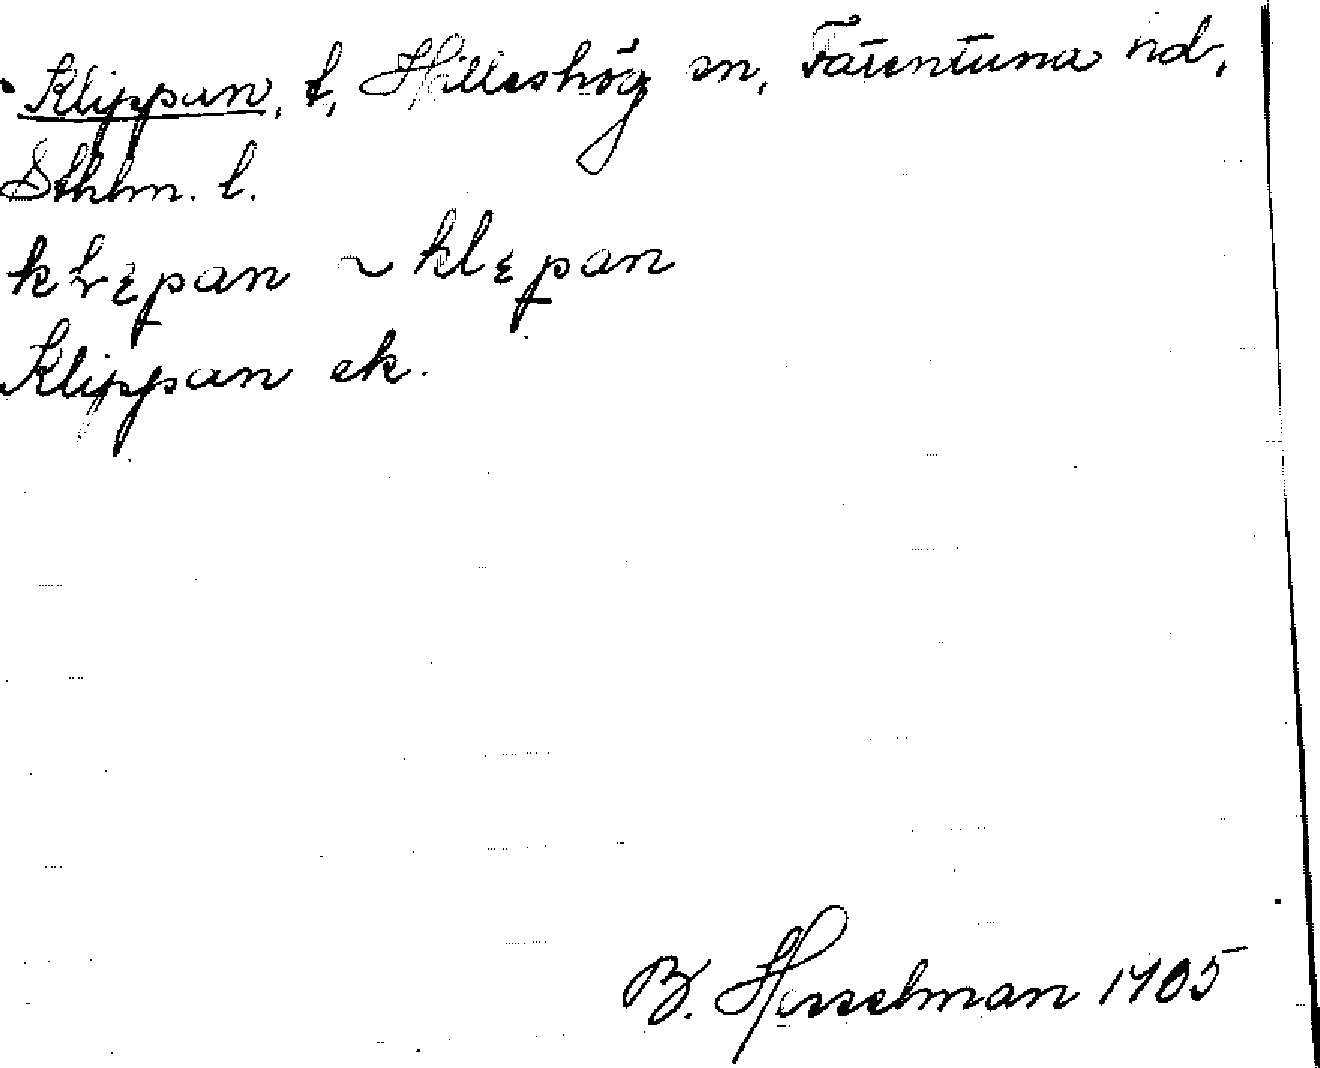 Klippan, t, Hilleshög sn, Färentuna hd,
Sthlm. l.
klepan ~ klepan
Klippan ek.
B. Hesselman 1905